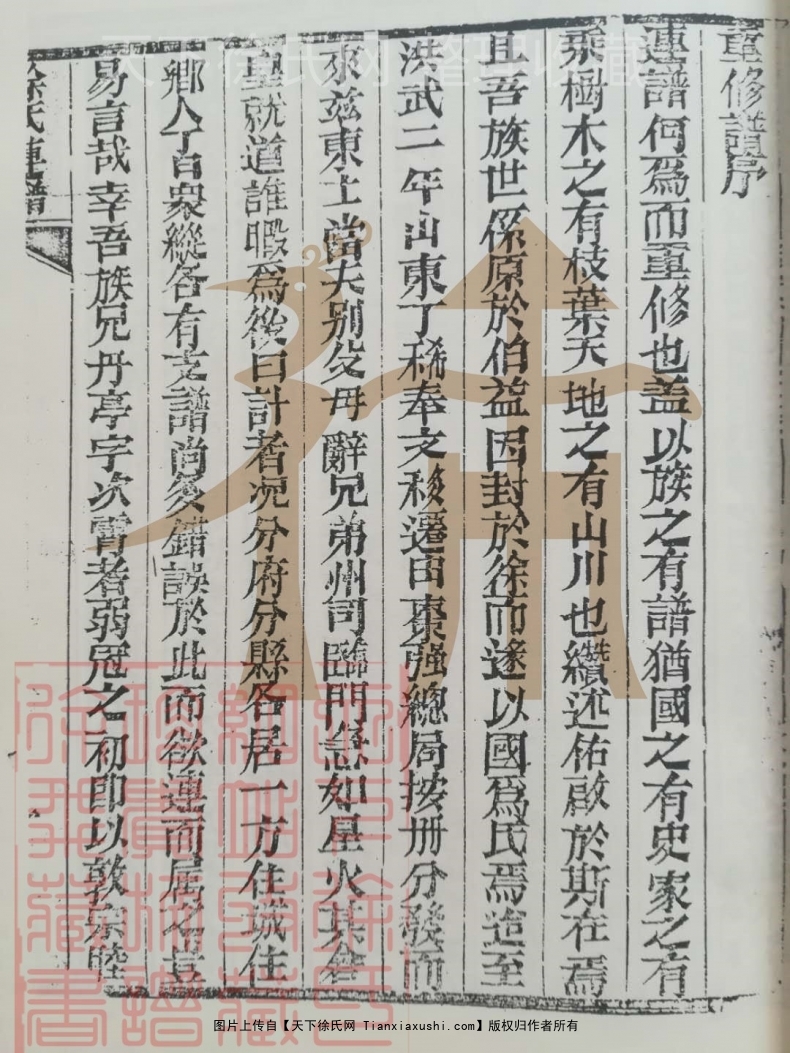 重修譜序
連譜何爲而重修也盖以族之有譜猶國之有史家之有
乘樹木之有枝葉天地之有山川也纘述佑啟於斯在焉
且吾族世係原於伯益因封於徐而遂以國爲氏焉迨至
洪武二年山東了稀奉文移遷由棗强總局按册分發而
來兹東土當夫别父母辭兄弟州司臨門急如星火其倉
皇就道誰暇爲後日計者况分府分縣各居一方住城住
鄉人丁百衆縱各有支譜尚多錯誤於此而欲連而属之豈
易言哉幸吾族兄丹亭字次霄者弱冠之初即以敦宗睦
徐氏連譜
天下徐氏网 整理收藏
图片上传自【天下徐氏网 Tianxiaxushi.com】版权归作者所有